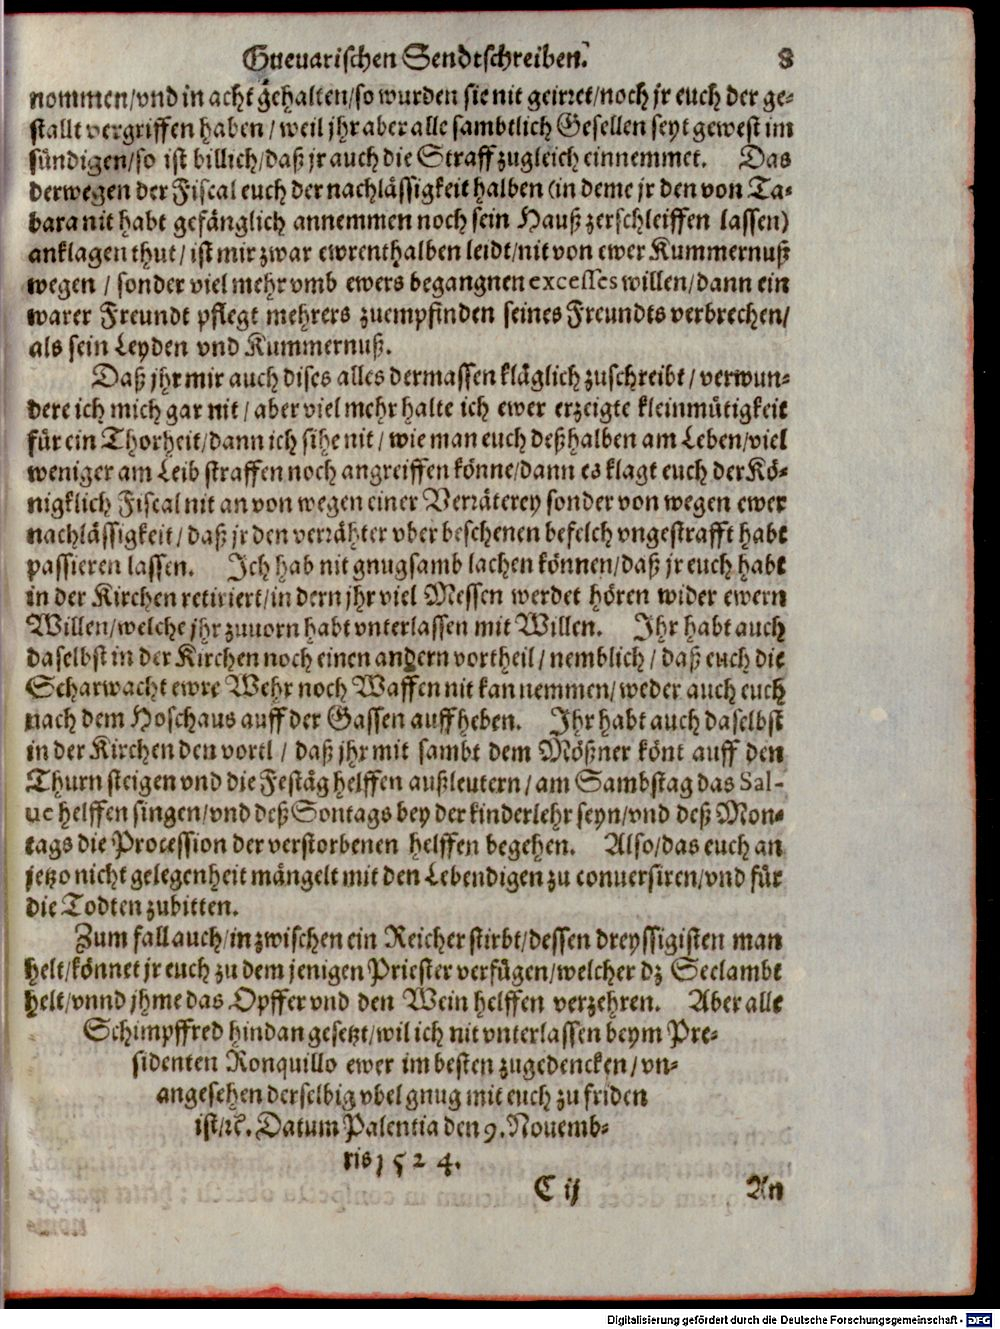 Gueuarischen Sendtschreiben. 8
nommen/vnd in acht gehalten/so wurden sie nit geirret/noch jr euch der ge-
stallt vergriffen haben / weil jhr aber alle sambtlich Gesellen seyt gewest im
sündigen/so ist billich/daß jr auch die Straff zugleich einnemmet. Das
derwegen der Fiscal euch der nachlässigkeit halben (in deme jr den von Ta-
bara nit habt gefänglich annemmen noch sein Hauß zerschleiffen lassen)
anklagen thut / ist mir zwar ewrenthalben leidt/nit von ewer Kummernuß
wegen / sonder viel mehr vmb ewers begangnen excesses willen/dann ein
warer Freundt pflegt mehrers zuempfinden seines Freundts verbrechen/
als sein Leyden vnd Kummernuß.
Daß jhr mir auch dises alles dermassen kläglich zuschreibt / verwun-
dere ich mich gar nit / aber viel mehr halte ich ewer erzeigte kleinmütigkeit
für ein Thorheit/dann ich sihe nit / wie man euch deßhalben am Leben/viel
weniger am Leib straffen noch angreiffen könne/dann es klagt euch der Kö-
nigklich Fiscal nit an von wegen einer Verräterey sonder von wegen ewer
nachlässigkeit / daß jr den verrähter vber beschenen befelch vngestrafft habt
passieren lassen. Ich hab nit gnugsamb lachen können/daß jr euch habt
in der Kirchen retiriert/in dern jhr viel Messen werdet hören wider ewern
Willen/welche jhr zuuorn habt vnterlassen mit Willen. Ihr habt auch
daselbst in der Kirchen noch einen andern vortheil / nemblich / daß euch die
Scharwacht ewre Wehr noch Waffen nit kan nemmen/weder auch euch
nach dem Hoschaus auff der Gassen auffheben. Ihr habt auch daselbst
in der Kirchen den vortl / daß jhr mit sambt dem Mößner könt auff den
Thurn steigen vnd die Festäg helffen außleutern / am Sambstag das Sal-
ue helffen singen/vnd deß Sontags bey der kinderlehr seyn/vnd deß Mon-
tags die Procession der verstorbenen helffen begehen. Also/das euch an
jetzo nicht gelegenheit mängelt mit den Lebendigen zu conuersiren/vnd für
die Todten zubitten.
Zum fall auch/inzwischen ein Reicher stirbt/dessen dreyssigisten man
helt/könnet jr euch zu dem jenigen Priester verfügen/welcher dz Seelambt
helt/vnnd jhme das Opffer vnd den Wein helffen verzehren. Aber alle
Schimpffred hindan gesetzt/wil ich nit vnterlassen beym Pre-
sidenten Ronquillo ewer im besten zugedencken / vn-
angesehen derselbig vbel gnug mit euch zu friden
ist/ꝛc. Datum Palentia den 9. Nouemb-
ris 1524.
C ij An
Digitalisierung gefördert durch die Deutsche Forschungsgemeinschaft - DFG